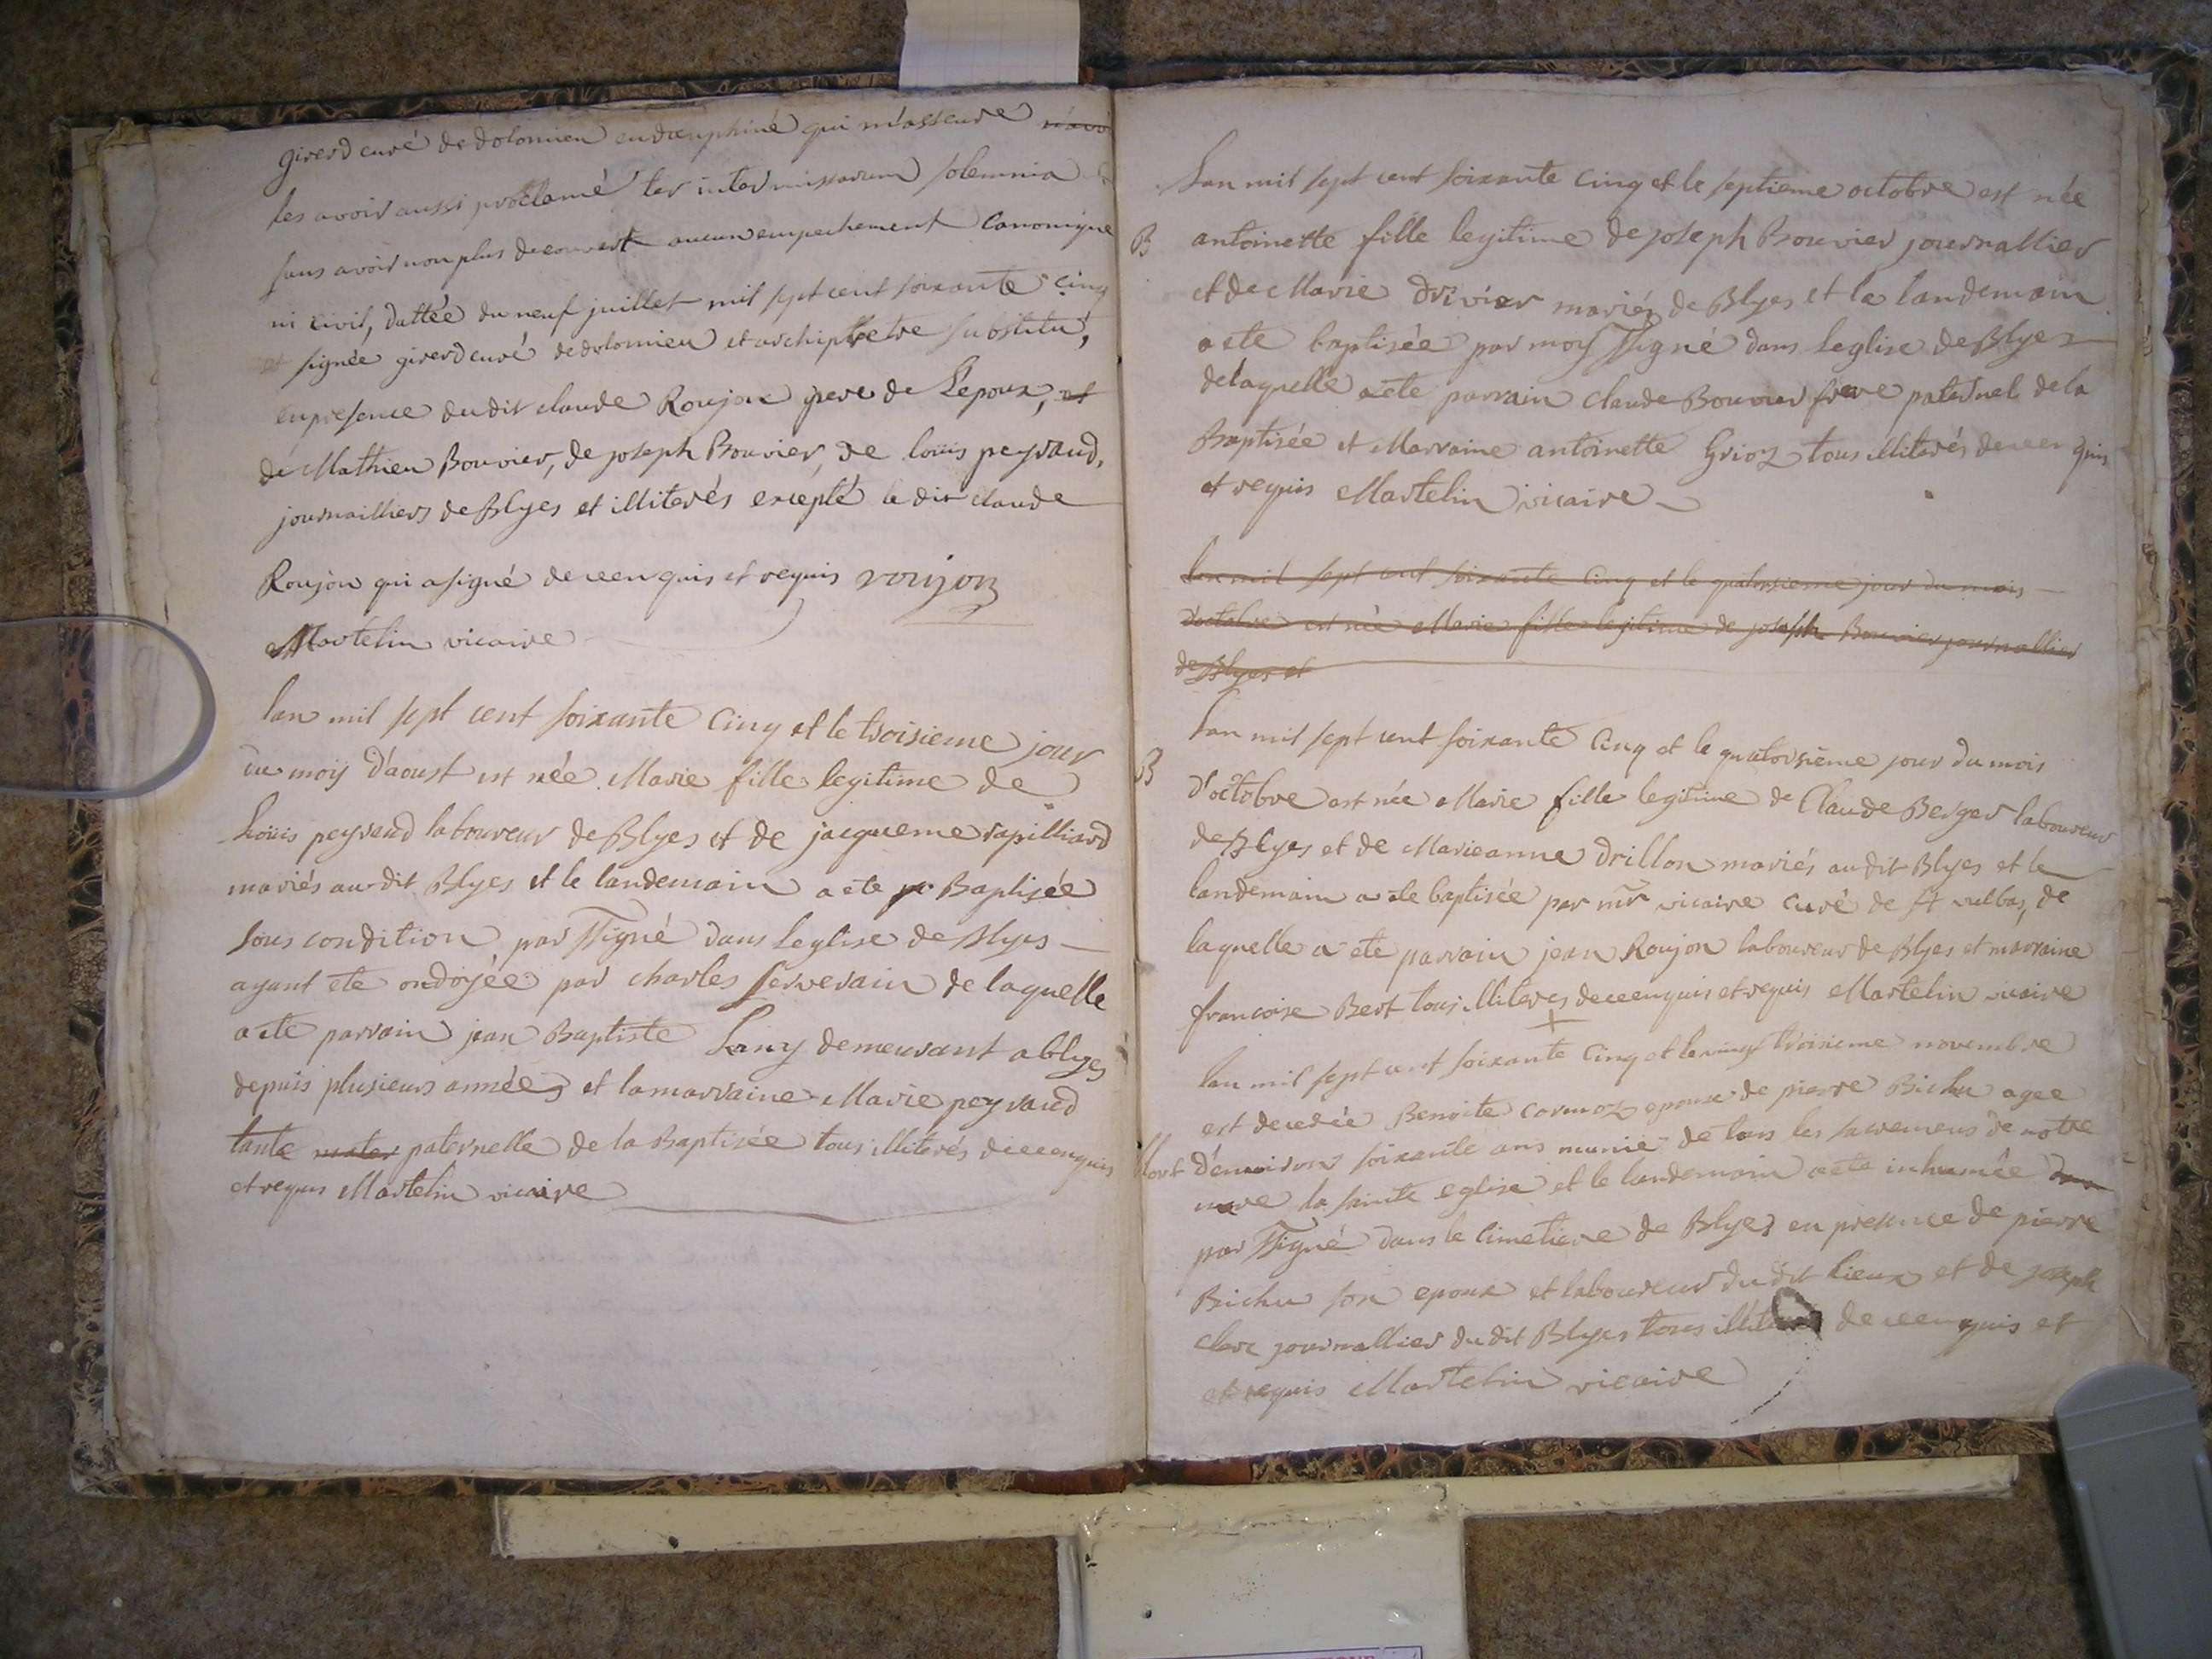 girerd curé de dolomieu en dauphiné qui m'asseure
les avoir aussi proclamé ter inter missarum solemnia
sans avoir non plus decouvert aucun empechement canonique
ni civil, dattée du neuf juillet mil sept cent soixante cinq
et signée girerd curé de dolomieu et archipretre substitué,
en presence du dit claude Roujon pere de Lepoux, et
de Mathieu Bouvier, de joseph Bouvier, de louis peyraud,
journailliers de Blyes et illiterés excepté le dit claude
Roujon qui a signé de ce enquis et requis roujon
Martelin vicaire
lan mil sept cent soixante cinq et le troisieme jour
du moy d'aoust est née Marie fille legitime de
Louis peyraud laboureur de Blyes et de jacqueme rapilliard
mariés au dit Blyes et le landemain a ete Baptisée
sous condition par ssigné dans leglise de Blyes
ayant ete ondoyée par charles serverain de laquelle
a ete parrain jean Baptiste Lany demeurant a blyes
depuis plusieurs années et la marraine Marie peyraud
tante mater paternelle de la Baptisée tous illiterés de ce enquis
et requis Martelin vicaire
Lan mil sept cent soixante cinq et le septieme octobre est née
B antoinette fille legitime de joseph Bouvier journallier
et de Marie drivier mariés de Blyes et le landemain
a ete baptisée par moy ssigné dans leglise de Blyes
de laquelle a ete parrain claude Bouvier frere paternel de la
Baptisée et Marraine antoinette Grioz tous illiterés de ce enquis
et requis Martelin vicaire
Lan mil sept cent soixante cinq et le quatorsieme jour du mois
d'octobre est née Marie fille legitime de joseph Bouvier journallier
de Blyes et
Lan mil sept cent soixante cinq et le quatorsieme jour du mois
B d'octobre est née Marie fille legitime de Claude Berger laboureur
de Blyes et de Marieanne drillon mariés au dit Blyes et le
landemain a ete baptisée par mr vicaire curé de st vulbas, de
laquelle a ete parrain jean Roujon laboureur de Blyes et marraine
francoise Bert tous illiterés de ce enquis et requis Martelin vicaire
lan mil sept cent soixante cinq et le vingt troisieme novembre
est decedée Benoite carmoz epouse de pierre Bichu agee
Mort d'environ soixante ans munie de tous les sacremens de notre
mere la sainte eglise et le landemain a ete inhumée dans
par ssigné dans le cimetiere de Blyes en presence de pierre
Bichu son epoux et laboureur du dit lieux et de joseph
clerc journallier du dit Blyes tous illiterés de ce enquis et
et requis Martelin vicaire